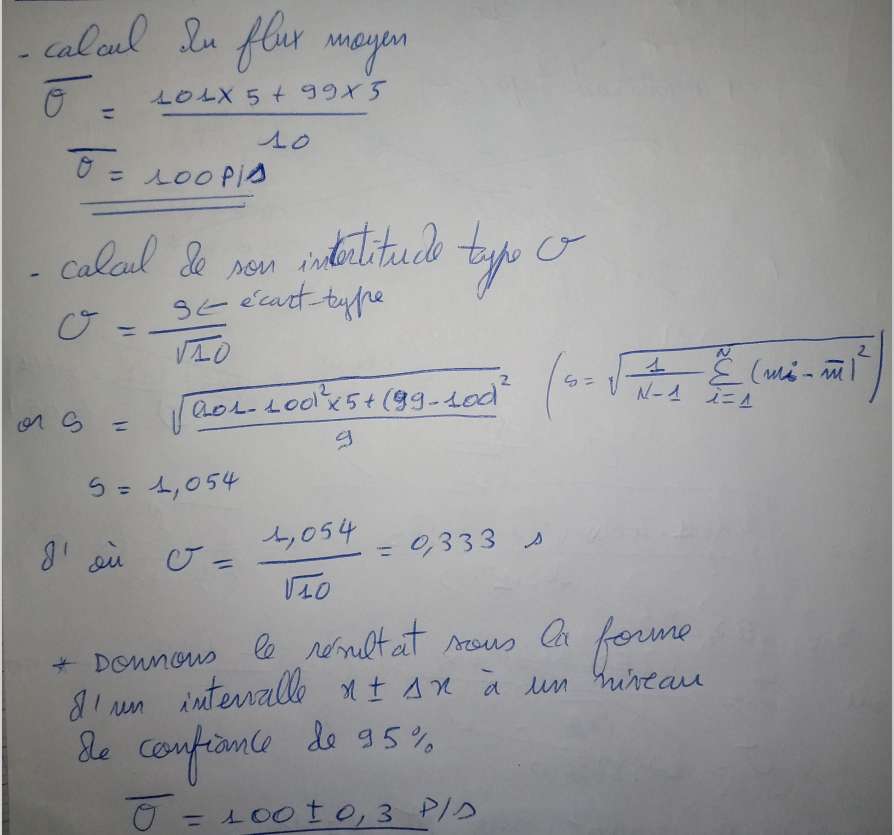 - calcul du flux moyen
σ̅ = (101 × 5 + 99 × 5) / 10
σ̅ = 100 P/s
- calcul de son intertitude type σ
σ = s ← écart-type / √10
or s = √((101 - 100)² × 5 + (99 - 100)² / 9) (s = √(1/(N-1) Σ_{i=1}^{N} (mi - m̅)²))
s = 1,054
d'où σ = 1,054 / √10 = 0,333 s
* Donnons le résultat sous la forme
d'un intervalle x ± Δx à un niveau
de confiance de 95%
σ̅ = 100 ± 0,3 P/s